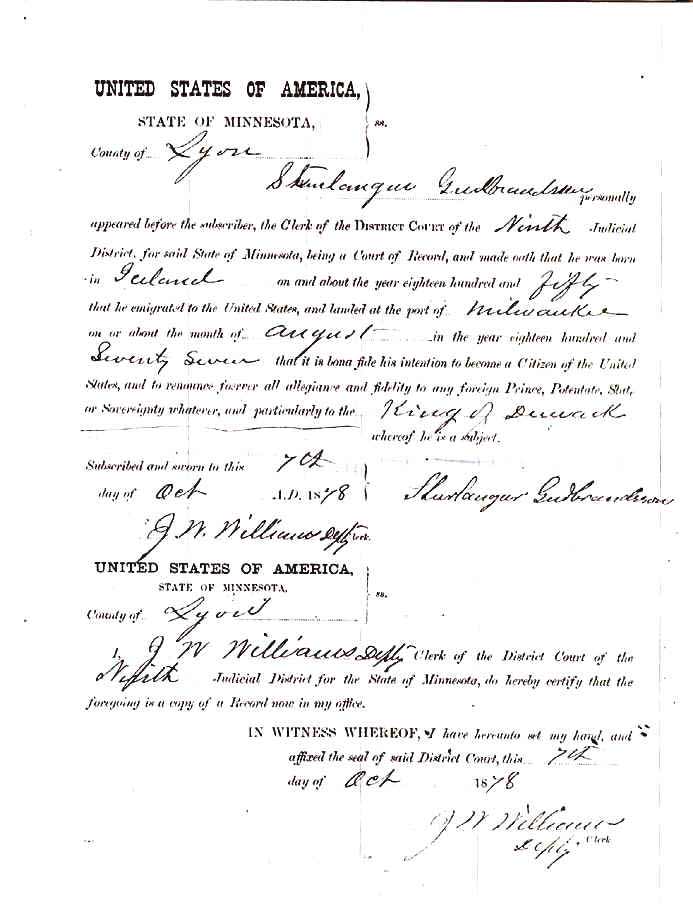 UNITED STATES OF AMERICA,
STATE OF MINNESOTA,
ss.
County of Lyon
Sturlangur Gudbrandson personally
appeared before the subscriber, the Clerk of the DISTRICT COURT of the Ninth Judicial
District, for said State of Minnesota, being a Court of Record, and made oath that he was born
in Iceland on and about the year eighteen hundred and fifty
that he emigrated to the United States, and landed at the port of Milwaukee
on or about the month of August in the year eighteen hundred and
Seventy Seven that it is bona fide his intention to become a Citizen of the United
States, and to renounce forever all allegiance and fidelity to any foreign Prince, Potentate, State
or Sovereignty whatever, and particularly to the King of Denmark
whereof he is a subject.
Subscribed and sworn to this 7th
day of Oct A.D. 1878
Sturlangur Gudbrandson
J. W. Williams Depty Clerk.
UNITED STATES OF AMERICA,
STATE OF MINNESOTA,
ss.
County of Lyon
I, J W Williams Depty Clerk of the District Court of the
Ninth Judicial District for the State of Minnesota, do hereby certify that the
foregoing is a copy of a Record now in my office.
IN WITNESS WHEREOF, I have hereunto set my hand, and
affixed the seal of said District Court, this 7th
day of Oct 1878
J W Williams
Depty Clerk